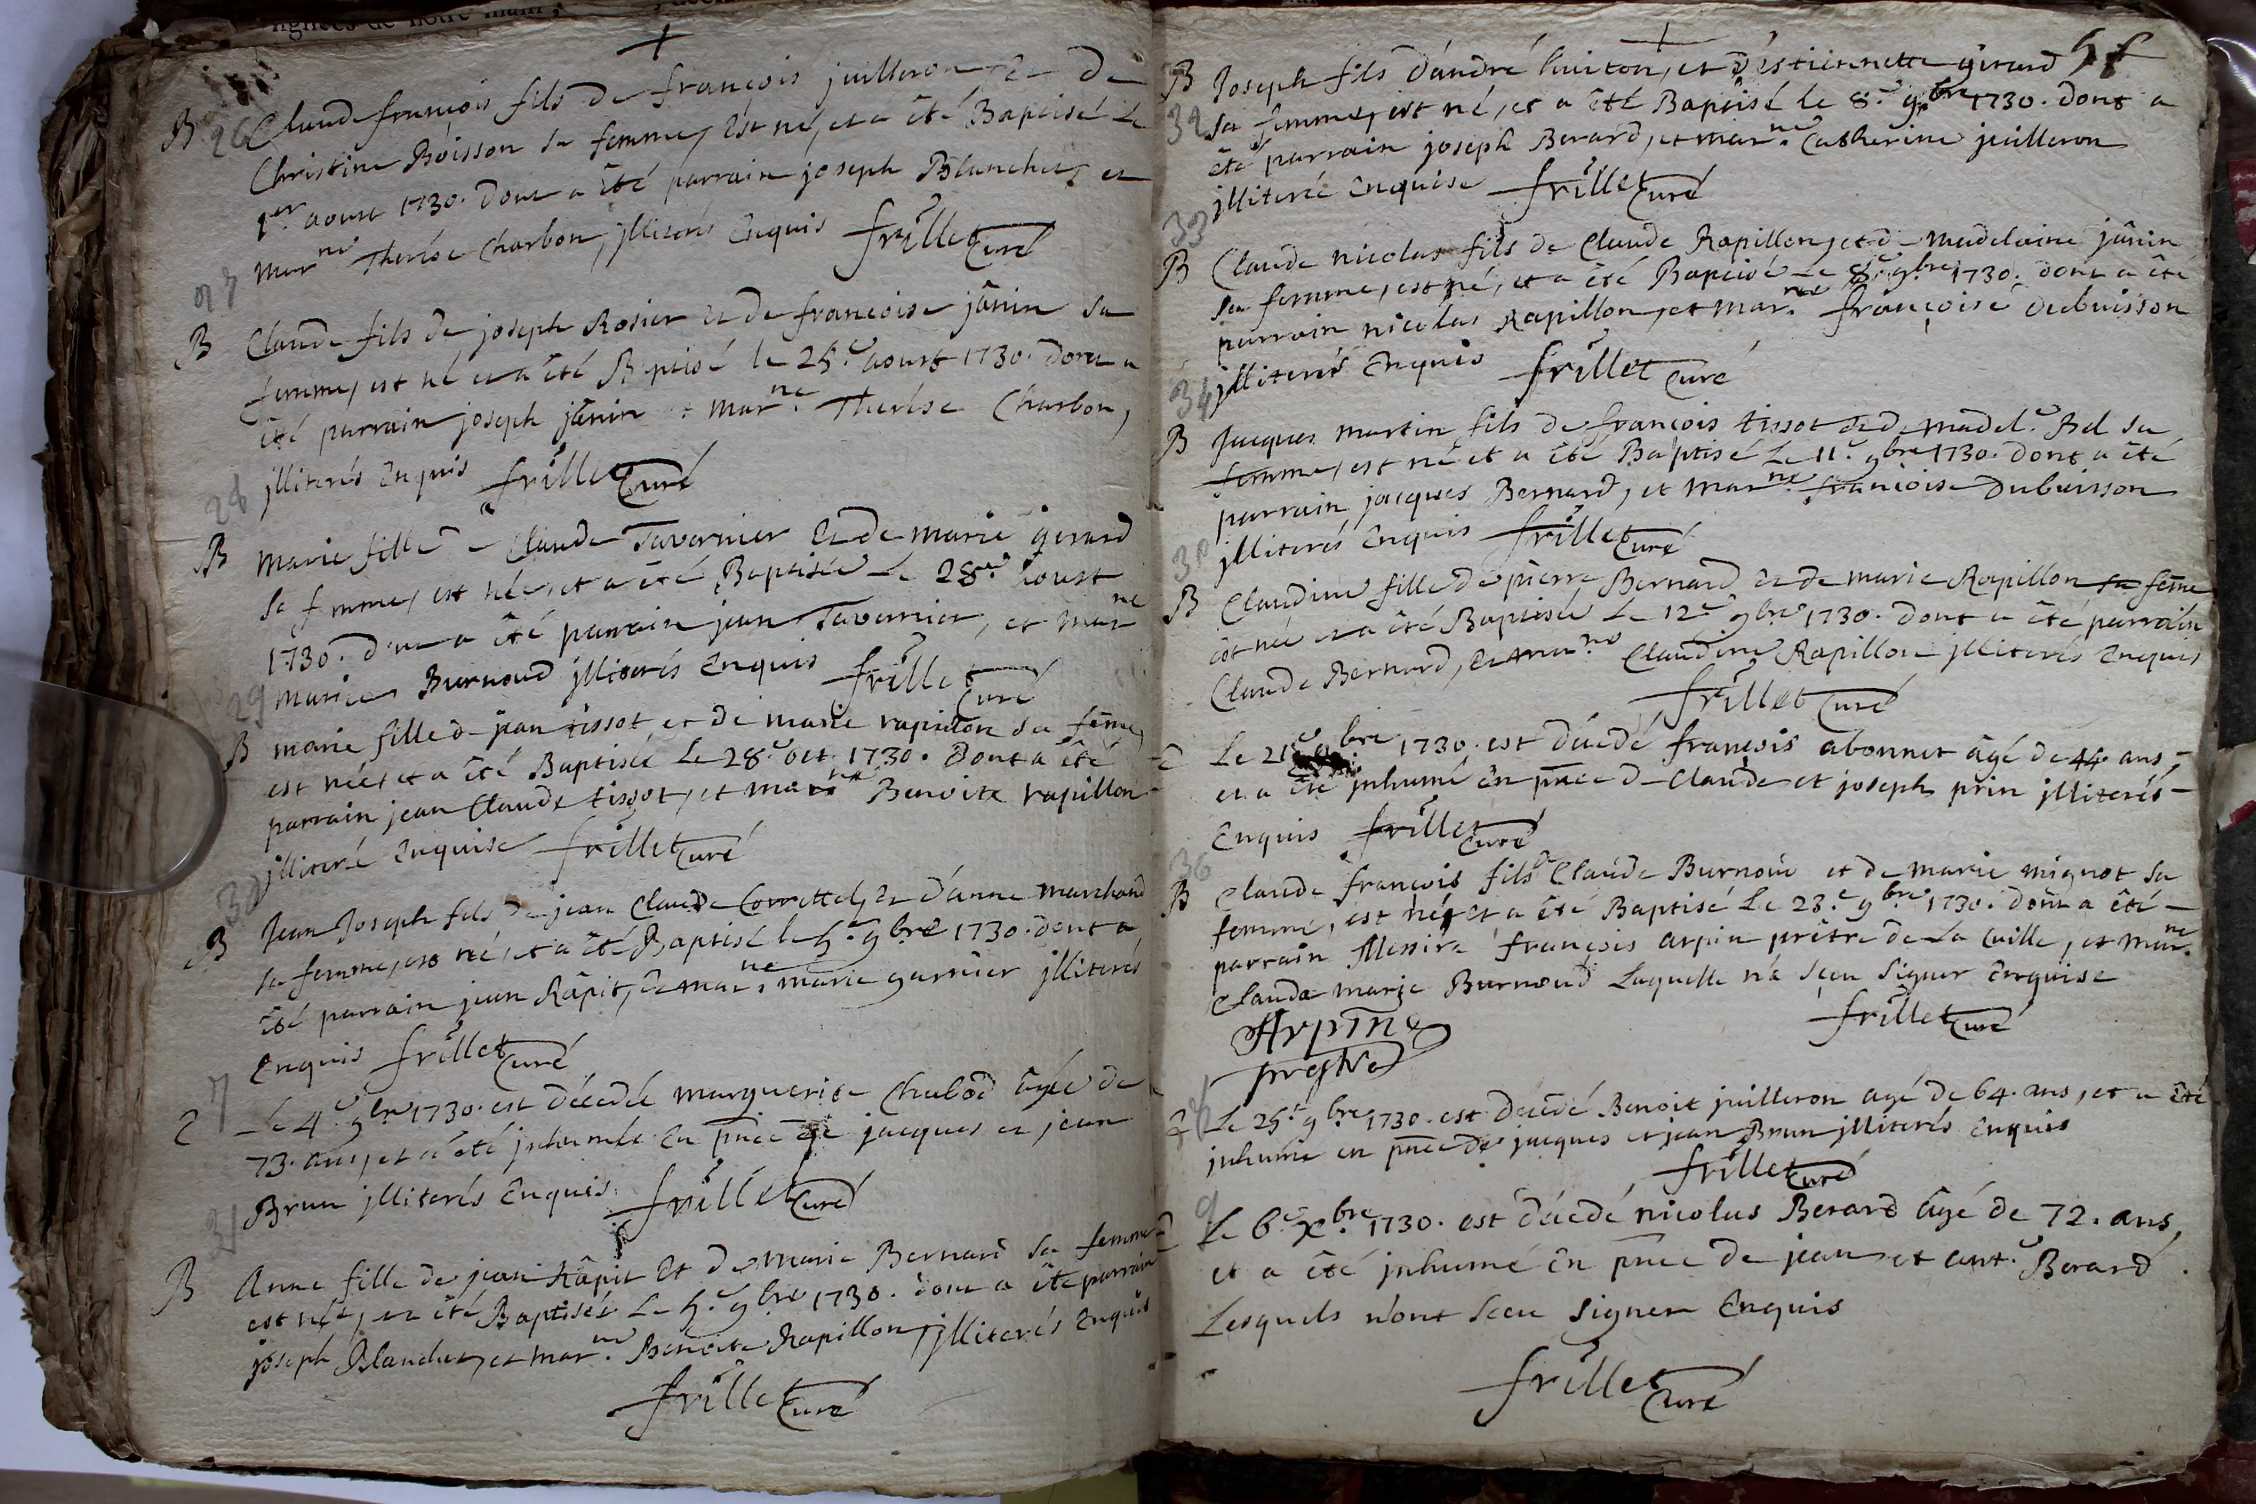 ignées de notre main,
B 26 Claude françois fils de françois juilleron et de
Christine Boisson sa femme, est né, et a été Baptisé le
1er aoust 1730. dont a été parrain joseph Blanchet, et
marne Therese Charbon, jlliterés Enquis frillet Curé
27
B Claude fils de joseph Rosier et de francoise jânin sa
femme, est né et a été Baptisé le 25e aoust 1730. dont a
été parrain joseph jânin et marne. Therese Charbon,
jlliterés Enquis frillet Curé
28
B Marie fille de Claude Tavernier et de marie girard
sa femme, est née, et a été Baptisée le 28e aoust
1730. dont a été parrain jean Tavernier, et marne
marie Burnoud jlliterés Enquis frillet Curé
29
B marie fille de jean tissot et de marie rapillon sa fême,
est née, et a été Baptisée Le 28e oct. 1730. Dont a été
parrain jean Claude tissot, et marne Benoite rapillon
jlliteré Enquise frillet Curé
30
B Jean Joseph fils de jean Claude Correttel, et d'anne marchand
sa femme, est né, et a été Baptisé le 5e 9bre 1730. dont a
été parrain jean Râpit, et marne. marie garnier jlliterés
Enquis frillet Curé
7
Le 4e 9bre 1730. est décedée marguerite Chabod âgée de
73. ans, et a été jnhumée En pnce de jacques et jean
Brun jlliterés Enquis frillet Curé
31
B Anne fille de jean Râpit et de Marie Bernard sa femme
est née, et a été Baptisée Le 5e 9bre 1730. dont a été parrain
joseph Blanchet, et marne. Benoite Rapillon, jlliterés Enquis
frillet Curé
B Joseph fils d'andré huiton, et d'éstiennette girard
32 sa femme, est né, et a été Baptisé le 8e 9bre 1730. dont a
été parrain joseph Berard, et marne. Catherine juilleron
jlliteré Enquise frillet Curé
33
B Claude nicolas fils de Claude Rapillon, et de madelaine jânin
sa femme, est né, et a été Baptisé Le 8e 9bre 1730. dont a été
parrain nicolas Rapillon, et marne. françoise dubuisson
jlliterés Enquis frillet Curé
34
B Jacques martin fils de françois tissot et de madel.e Bel sa
femme, est né et a été Baptisé Le 11e 9bre 1730. dont a été
parrain jacques Bernard, et marne francoise Dubuisson
jlliterés Enquis frillet Curé
35
B Claudine fille de pierre Bernard et de marie Rapillon sa fême
est née et a été Baptisée Le 12e 9bre 1730. dont a été parrain
Claude Bernard, et marne Claudine Rapillon jlliterés Enquis
frillet Curé
Le 21e 9bre 1730. est décedé françois abonnet âgé de 44 ans,
et a été jnhumé En pnce de Claude et joseph prin jlliterés
Enquis frillet Curé
36
B Claude françois fils de Claude Burnoud et de marie mignot sa
femme, est né, et a été Baptisé Le 23e 9bre 1730. dont a été
parrain Messire françois arpin prêtre de La Cuille, et marne.
Claude marie Burnoud Laquelle n'a sceu signer Enquise
Arpin frillet Curé
prestre
Le 25e 9bre 1730. est décedé Benoit juilleron agé de 64. ans, et a été
jnhumé en pnce de jacques et jean Brun jlliterés Enquis
frillet Curé
9
Le 6e Xbre 1730. est décedé nicolas Berard âgé de 72. ans,
et a été jnhumé En pnce de jean et ant.e Berard.
Lesquels n'ont sceu signer Enquis
frillet Curé